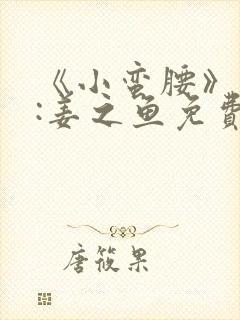 《小蛮腰》
:姜之鱼免費
唐筱果